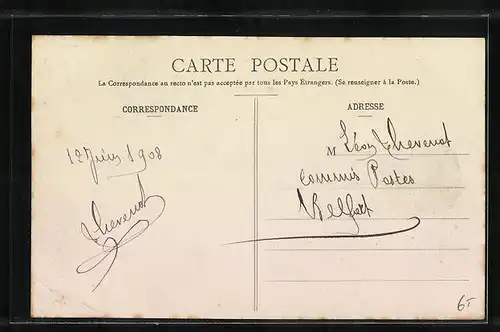 CARTE POSTALE
La Correspondance au recto n'est pas acceptée par tous les Pays Étrangers. (Se renseigner à la Poste.)
CORRESPONDANCE
12 Juin 1908
Thevenot
ADRESSE
M Léon Thevenot
commis Postes
Belfort
6-